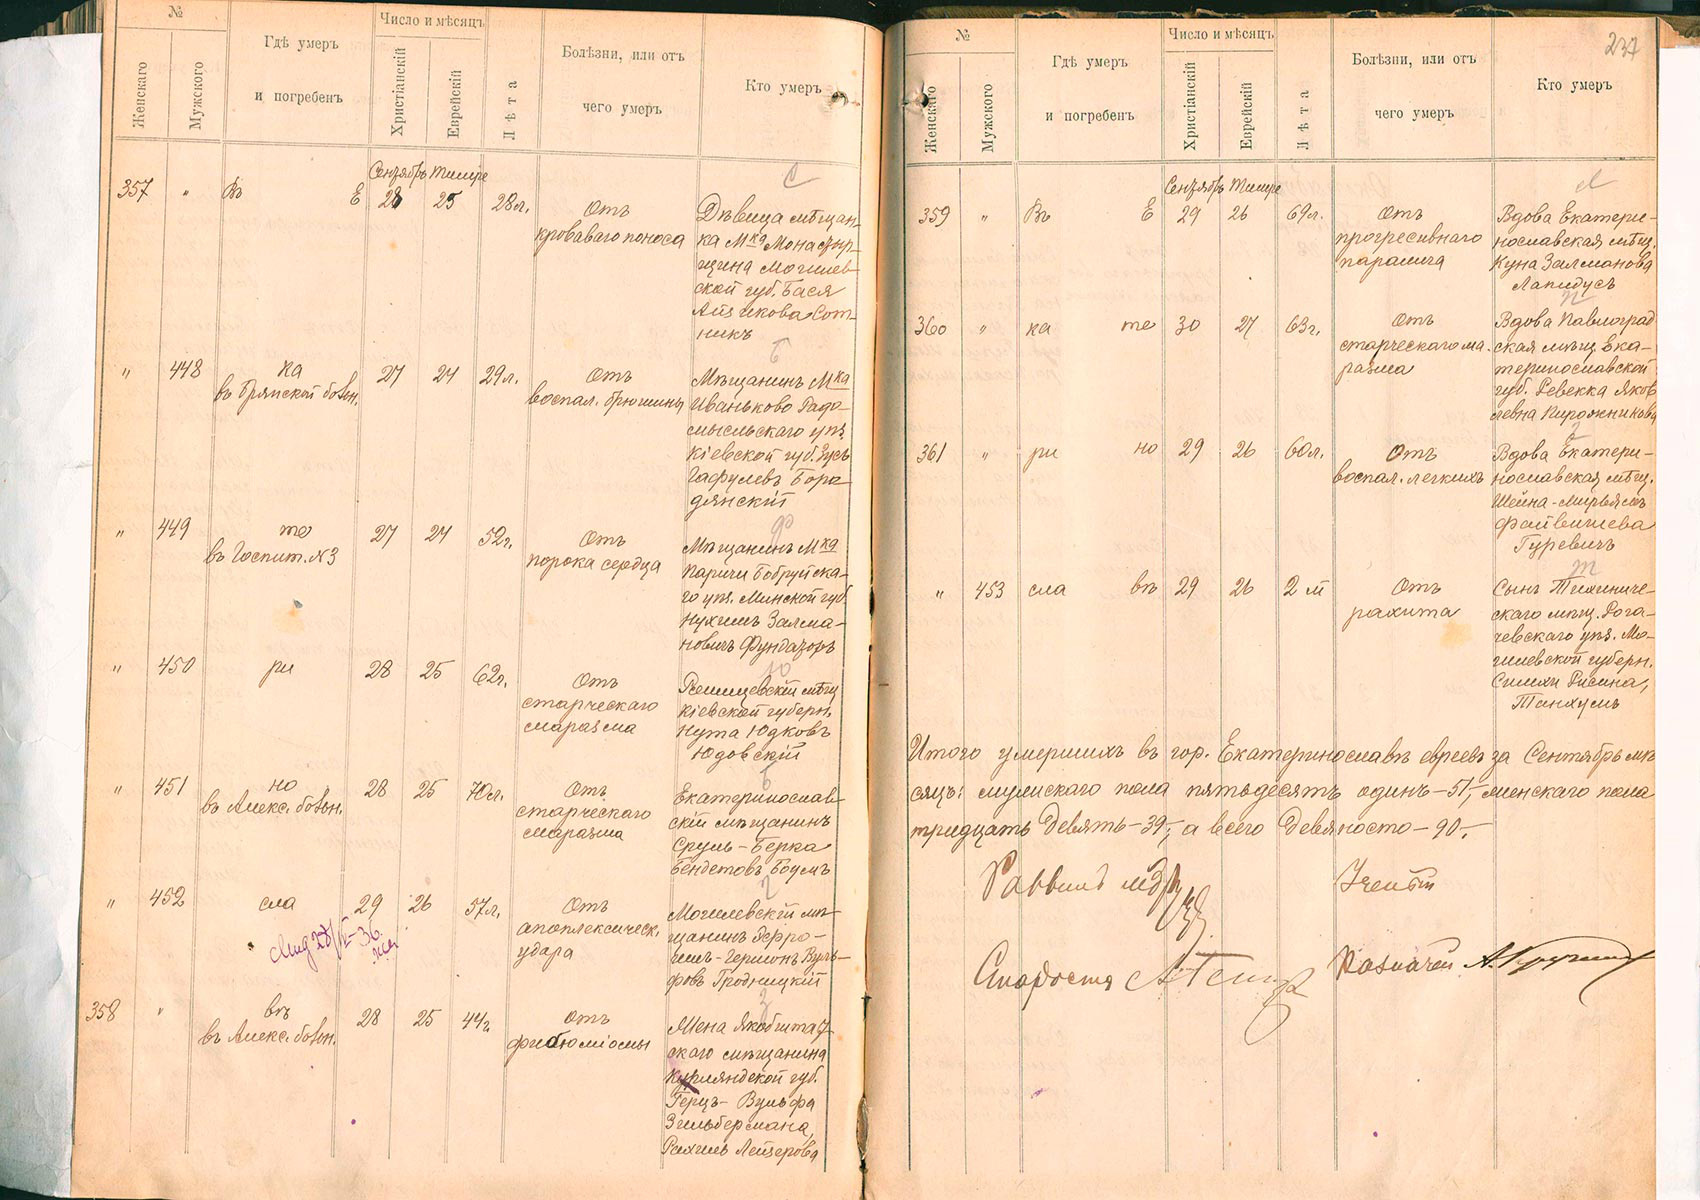 №
Женскаго
Мужского
Гдѣ умеръ
и погребенъ
Число и мѣсяцъ
Христіанскій
Еврейскій
Лѣта
Болѣзни, или отъ
чего умеръ
Кто умеръ
Сентябрь Тишре
357 " Въ Е 28 25 28 л.
Отъ
кроваваго поноса
Дѣвица мѣщан-
ка Мка Монастыр-
щина Могилев-
ской губ. Бася
Айзикова Сот-
никъ
" 448 ка 27 24 29 л.
въ Брянской больн.
Отъ
воспал. брюшины
Мѣщанинъ Мка
Иваньково Радо-
мысльскаго уѣз.
Кіевской губ.
Боро-
дянскій
" 449 те 27 24 52 г.
въ Госпит. №3
Отъ
порока сердца
Мѣщанинъ Мка
Паричи Бобруйска-
го уѣз. Минской губ.
Нухимъ Залма-
новичъ Фундаторъ
" 450 ри 28 25 62 г.
Отъ
старческаго
маразма
мѣщ.
Кіевской губерн.
Нута Юдковъ
Юдовскій
" 451 но 28 25 70 л.
въ Алекс. больн.
Отъ
старческаго
маразма
Екатеринослав-
скій мѣщанинъ
Сруль-Берка
Бендетовъ Боумъ
" 452 сла 29 26 57 л.
Отъ
апоплексическ.
удара
Могилевскій мѣ-
щанинъ Эфро-
имъ-Гершонъ Вуль-
фовъ Гродницкій
358 " въ 28 25 44 г.
въ Алекс. больн.
Отъ
фибоміомы
Жена Якобштадт-
скаго мѣщанина
Курляндской губ.
Герцъ-Вульфа
Зильбермана,
Рахиль Лейзерова
237
№
Женскаго
Мужского
Гдѣ умеръ
и погребенъ
Число и мѣсяцъ
Христіанскій
Еврейскій
Лѣта
Болѣзни, или отъ
чего умеръ
Кто умеръ
Сентябрь Тишре
359 " Въ Е 29 26 69 л.
Отъ
прогресивнаго
паралича
Вдова Екатери-
нославская мѣщ.
Куна Залманова
Лапидусъ
360 " ка те 30 27 63 г.
Отъ
старческаго ма-
разма
Вдова Павлоград-
ская мѣщ. Ека-
теринославской
губ. Ревекка Яков-
левна Пирожникова
361 " ри но 29 26 60 л.
Отъ
воспал. легкихъ
Вдова Екатери-
нославская мѣщ.
Шейна-Мирьямъ
Файвишева
Гуревичъ
" 453 сла въ 29 26 2 м
Отъ
рахита
Сынъ Тихиниче-
скаго мѣщ. Рога-
чевскаго уѣз. Мо-
гилевской губерн.
Симхи Рисина,
Танхумъ
Итого умершихъ въ гор. Екатеринославѣ евреевъ за Сентябрь мѣ-
сяцъ: мужскаго пола пятьдесятъ одинъ-51, женскаго пола
тридцать девять-39, а всего девяносто-90.
Раввинъ
Ученый
Староста
Казначей